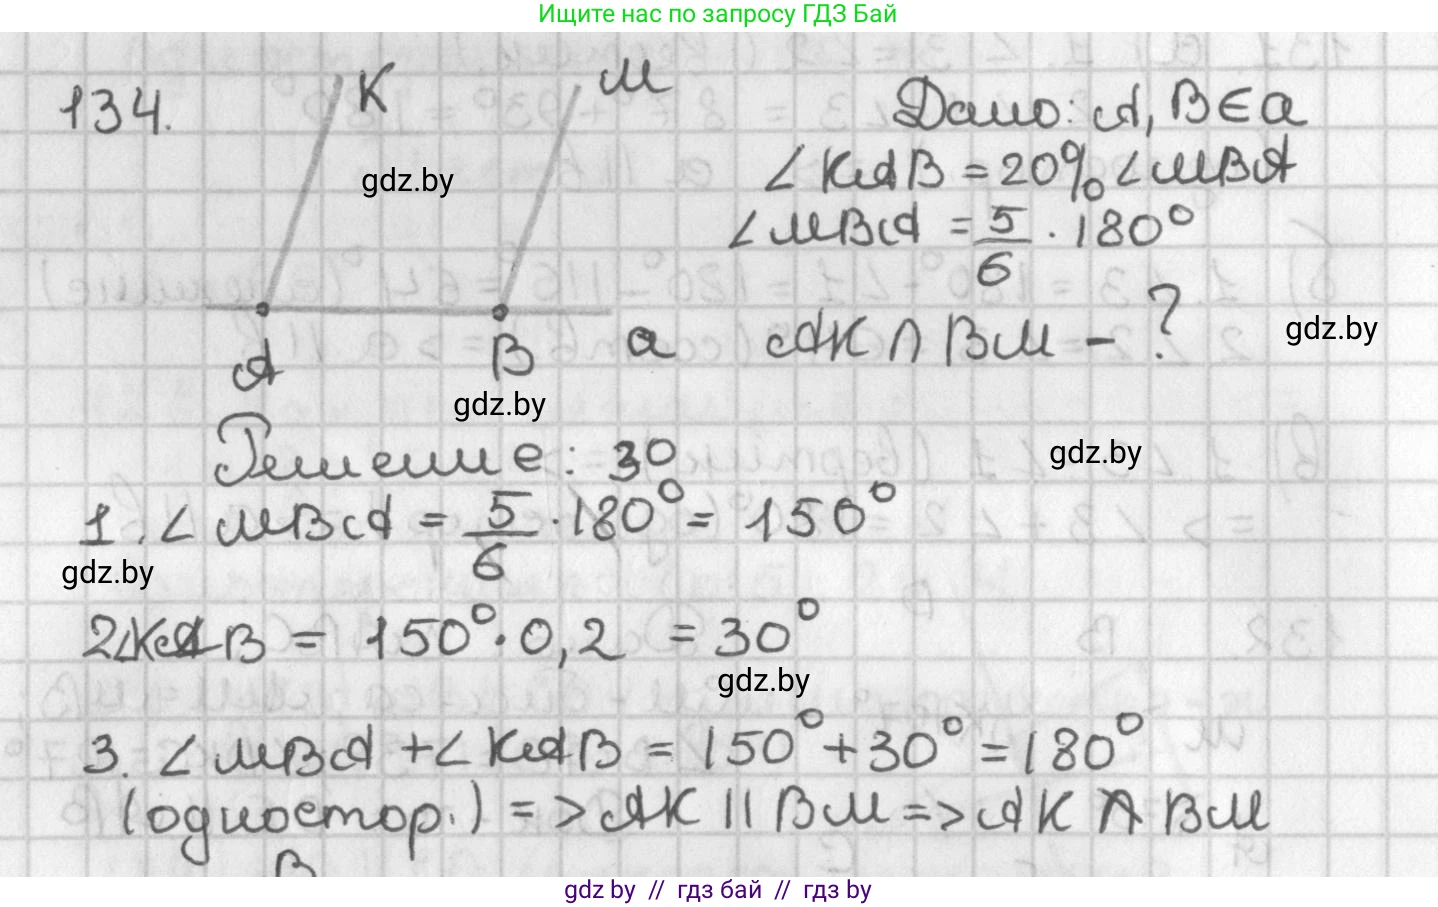 Ищите нас по запросу ГДЗ Бай
134.
K
M
gdz.by
A
B
a
gdz.by
Дано: A, B ∈ a
∠KAB = 20% ∠MBA
∠MBA = 5/6 · 180°
AK ∩ BM - ?
gdz.by
Решение:
gdz.by
1. ∠MBA = 5/6 · 180° = 150°
gdz.by
2∠KAB = 150° · 0,2 = 30°
gdz.by
3. ∠MBA + ∠KAB = 150° + 30° = 180°
(одностор.) => AK || BM => AK ∩ BM
B
gdz by // гдз бай // гдз by